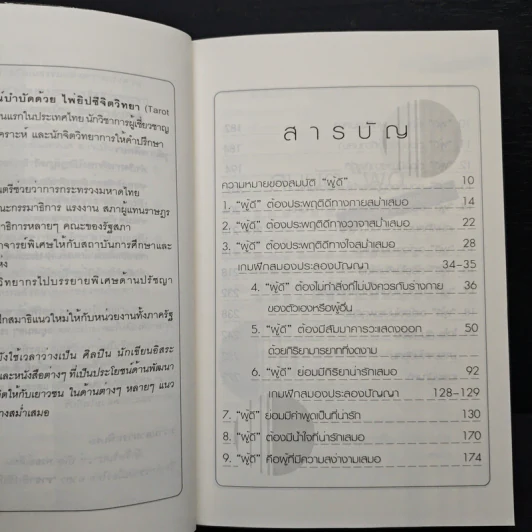 น์บำบัดด้วย ไพ่ยิปซีจิตวิทยา (Tarot
นแรกในประเทศไทย นักวิชาการผู้เชี่ยวชาญ
คราะห์ และนักจิตวิทยาการให้คำปรึกษา
ตรีช่วยว่าการกระทรวงมหาดไทย
ณะกรรมาธิการ แรงงาน สภาผู้แทนราษฎร
าธิการหลายๆ คณะของรัฐสภา
าจารย์พิเศษให้กับสถาบันการศึกษาและ
วิทยากรไปบรรยายพิเศษด้านปรัชญา
ึกสมาธิแนวใหม่ให้กับหน่วยงานทั้งภาครัฐ
ังใช้เวลาว่างเป็น ศิลปิน นักเขียนอิสระ
และหนังสือต่างๆ ที่เป็นประโยชน์ด้านพัฒนา
ิตให้กับเยาวชน ในด้านต่างๆ หลายๆ แนว
างสม่ำเสมอ
สารบัญ
ความหมายของสมบัติ "ผู้ดี" 10
1. "ผู้ดี" ต้องประพฤติดีทางกายสม่ำเสมอ 14
2. "ผู้ดี" ต้องประพฤติดีทางวาจาสม่ำเสมอ 22
3. "ผู้ดี" ต้องประพฤติดีทางใจสม่ำเสมอ 28
เกมฝึกสมองประลองปัญญา 34-35
4. "ผู้ดี" ต้องไม่ทำสิ่งที่ไม่บังควรกับร่างกาย 36
ของตัวเองหรือผู้อื่น
5. "ผู้ดี" ต้องมีสัมมาคารวะแสดงออก 50
ด้วยกิริยามารยาทที่งดงาม
6. "ผู้ดี" ย่อมมีกิริยาน่ารักเสมอ 92
เกมฝึกสมองประลองปัญญา 128-129
7. "ผู้ดี" ย่อมมีคำพูดเป็นที่น่ารัก 130
8. "ผู้ดี" ต้องมีน้ำใจที่น่ารักเสมอ 170
9. "ผู้ดี" คือผู้ที่มีความสง่างามเสมอ 174